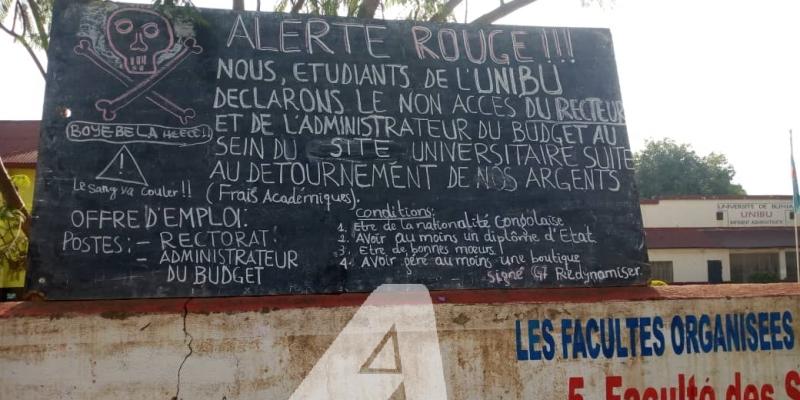 ALERTE ROUGE!!!
NOUS, ETUDIANTS DE L'UNIBU
DECLARONS LE NON ACCES DU RECTEUR
ET DE L'ADMINISTRATEUR DU BUDGET AU
SEIN DU SITE UNIVERSITAIRE SUITE
AU DETOURNEMENT DE NOS ARGENTS
(Frais Académiques).
BOYEBELA
Le sang va couler!!
OFFRE D'EMPLOI:
POSTES: - RECTORAT
- ADMINISTRATEUR
DU BUDGET
Conditions:
1. Etre de la nationalité Congolaise
2. Avoir au moins un diplôme d'Etat
3. Etre de bonnes mœurs
4. Avoir géré au moins une boutique
Signé G7 Redynamiser.
UNIVERSITE DE BUNIA
UNIBU
LES FACULTES ORGANISEES
5. Faculté des S
A